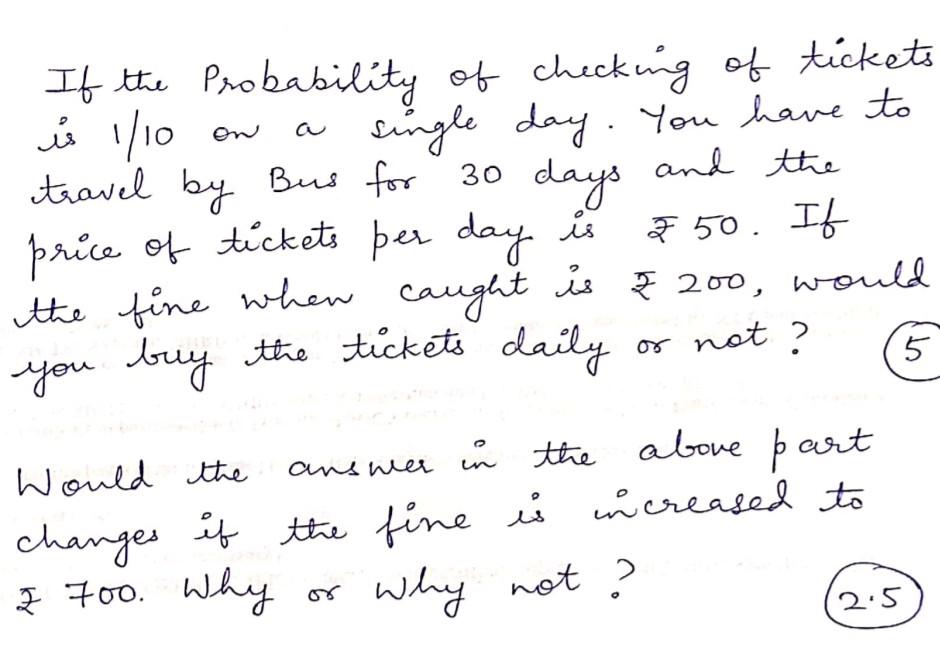 If the Probability of checking of tickets
is 1/10 on a single day. You have to
travel by Bus for 30 days and the
price of tickets per day is ₹ 50. If
the fine when caught is ₹ 200, would
you buy the tickets daily or not? (5)
Would the answer in the above part
changes if the fine is increased to
₹ 700. Why or why not? (2.5)